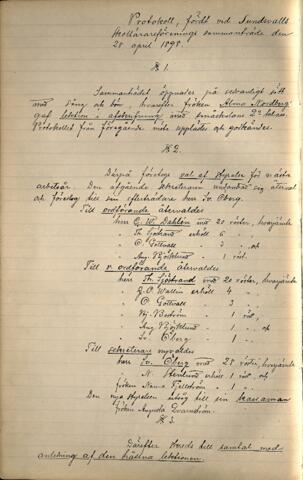 Protokoll, fördt vid Sundsvalls
skollärareförenings sammanträde den
28 april 1898.
§ 1.
Sammanträdet öppnades på sedvanligt sätt
med sång och bön, hvarefter fröken Alma Nordberg
gaf lektion i afskrifning med småskolans 2a klass.
Protokollet från föregående möte upplästes och godkändes.
§ 2.
Därpå företogs val af styrelse för nästa
arbetsår. Den afgående sekreteraren undanbad sig återval
och föreslog till sin efterträdare herr Iv. Öberg.
Till ordförande återvaldes
herr E. W. Dahlén med 20 röster, hvarjämte
Th. Sjöstrand erhöll 6 "
" C. Gottvall " 3 " och
" Aug. Björklund " 1 röst.
Till v. ordförande återvaldes
herr Th. Sjöstrand med 20 röster, hvarjämte
" J. O. Wallin erhöll 4 "
" C. Gottvall " 3 "
" Boström " 1 röst,
" Aug. Björklund " 1 " och
" Iv. Öberg " 1 "
Till sekreterare nyvaldes
herr Iv. Öberg med 28 röster, hvarjämte
" N. erhöll 1 röst och
fröken Nanna Fjellström " 1 "
Den nya styrelsen utsåg till sin kassaman
fröken Augusta
§ 3.
Därefter skreds till samtal med
anledning af den hållna lektionen.